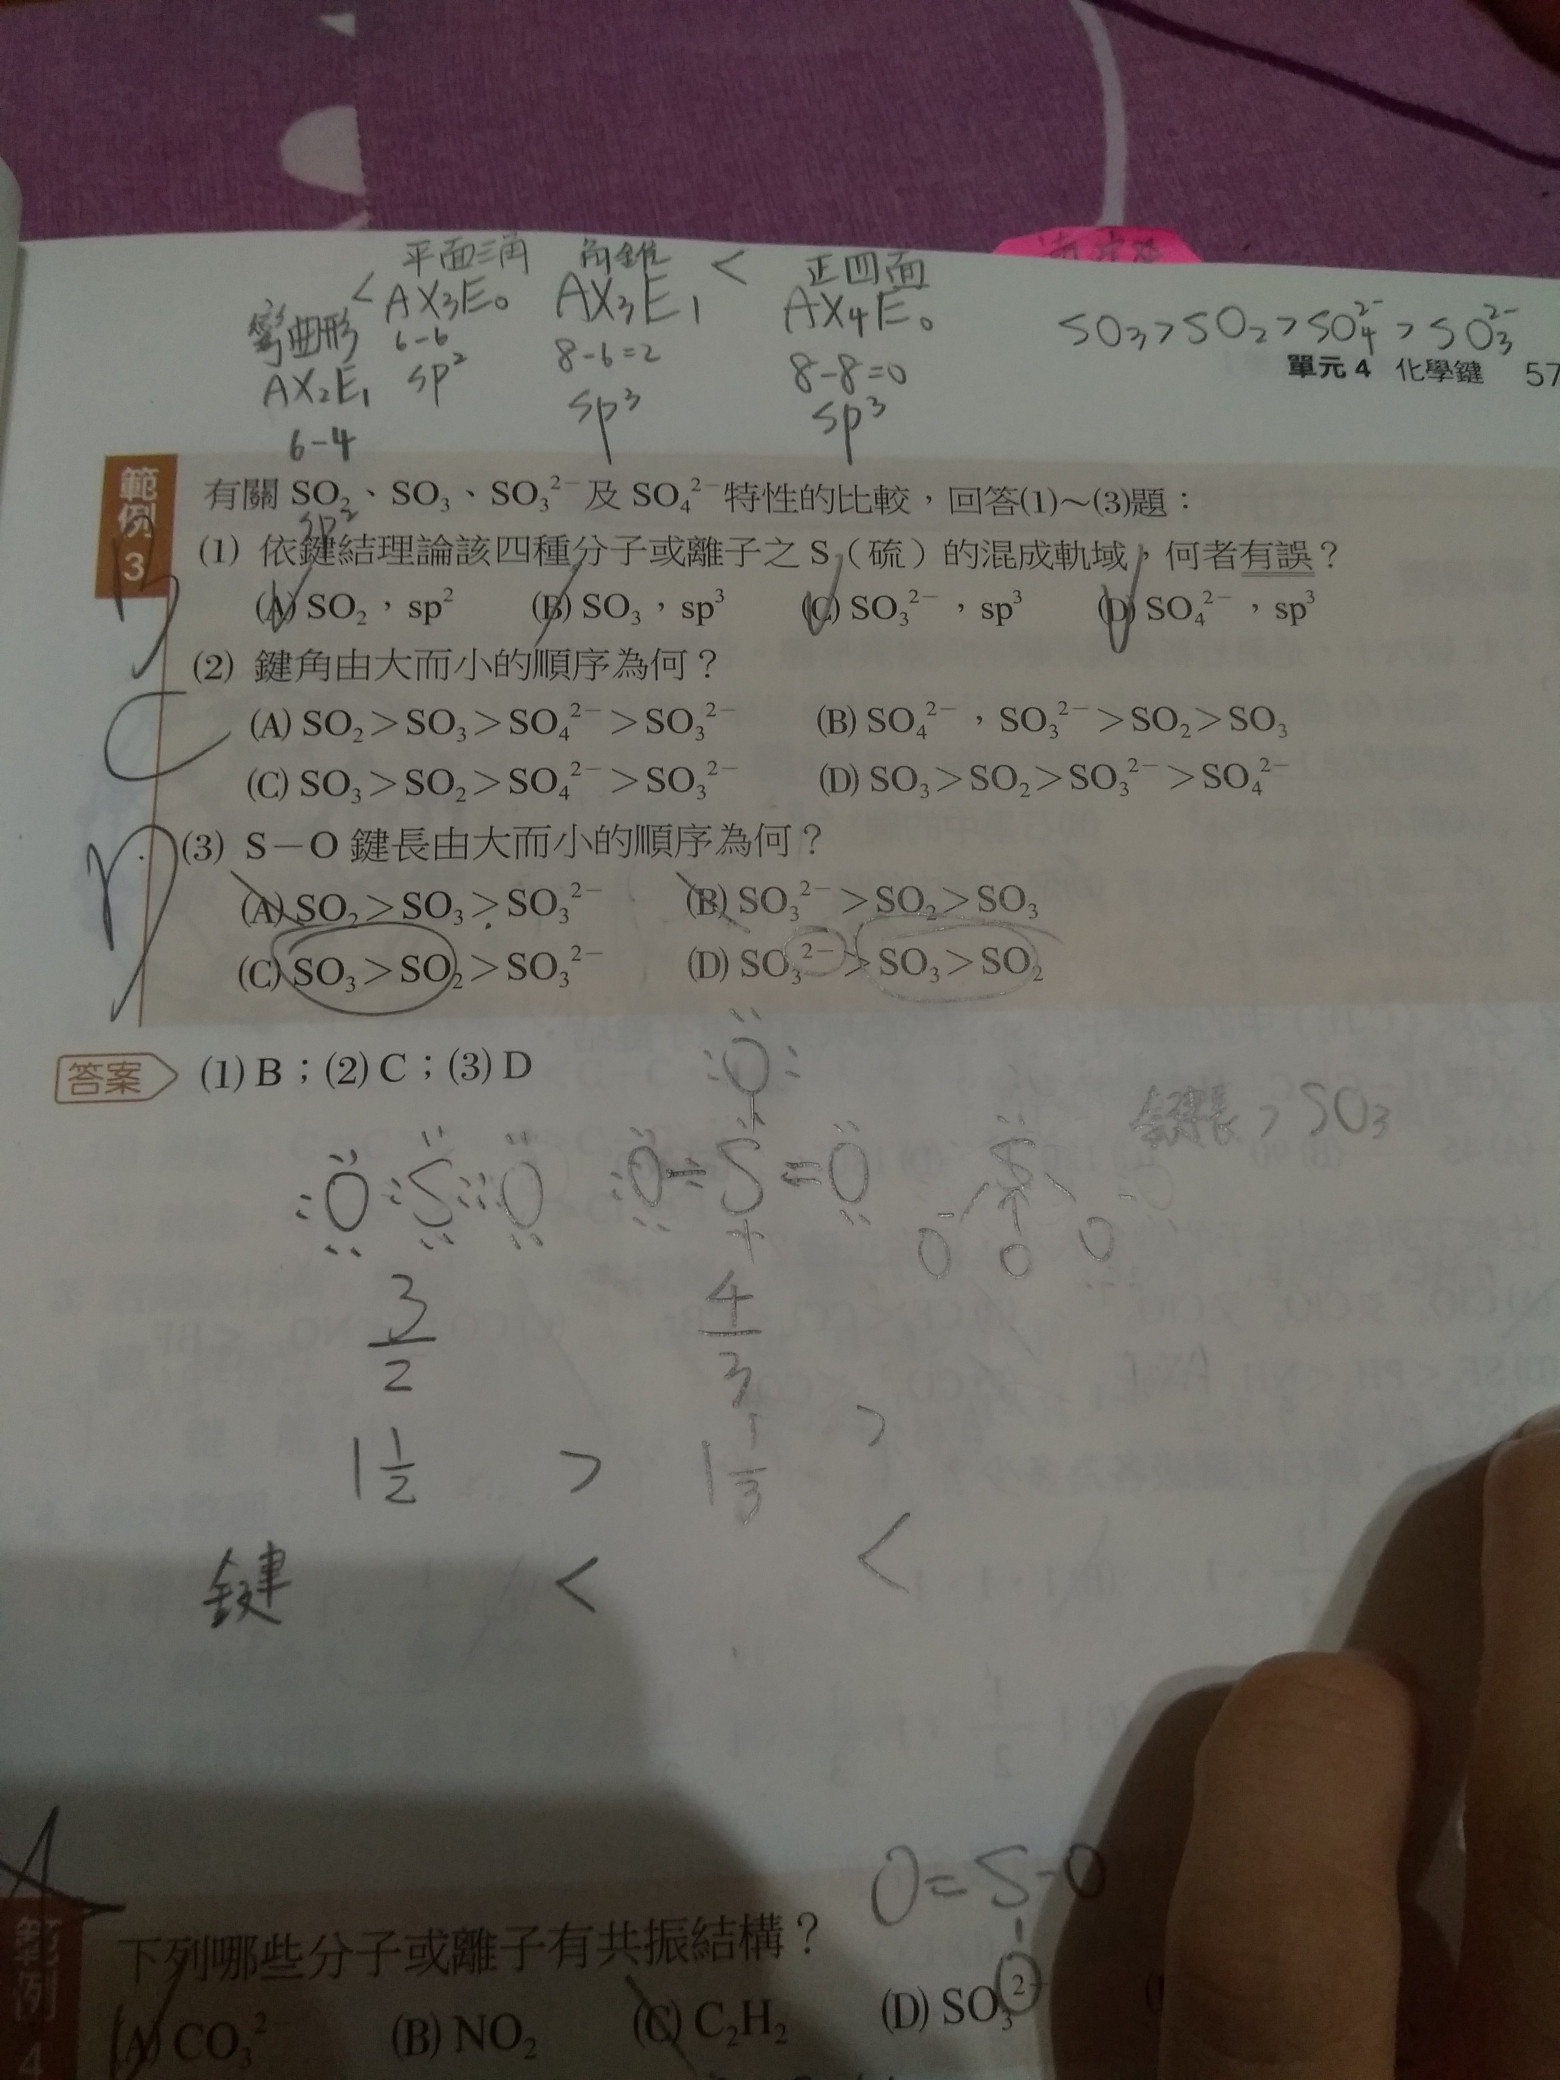 平面三角 角錐 < 正四面
彎曲形 < AX₃E₀ AX₃E₁ AX₄E₀
AX₂E₁ 6-6 8-6=2 8-8=0
6-4 sp² sp³ sp³
SO₃>SO₂>SO₄²⁻>SO₃²⁻
單元4 化學鍵 57
範例3
有關 SO₂、SO₃、SO₃²⁻及 SO₄²⁻特性的比較,回答(1)~(3)題:
sp²
(1) 依鍵結理論該四種分子或離子之 S(硫)的混成軌域,何者有誤?
B
(A) SO₂,sp² (B) SO₃,sp³ (C) SO₃²⁻,sp³ (D) SO₄²⁻,sp³
(2) 鍵角由大而小的順序為何?
C
(A) SO₂>SO₃>SO₄²⁻>SO₃²⁻ (B) SO₄²⁻,SO₃²⁻>SO₂>SO₃
(C) SO₃>SO₂>SO₄²⁻>SO₃²⁻ (D) SO₃>SO₂>SO₃²⁻>SO₄²⁻
(3) S-O 鍵長由大而小的順序為何?
D
(A) SO₂>SO₃>SO₃²⁻ (B) SO₃²⁻>SO₂>SO₃
(C) SO₃>SO₂>SO₃²⁻ (D) SO₃²⁻>SO₃>SO₂
答案 (1) B;(2) C;(3) D
O
鍵長>SO₃
O S O O=S=O S
O O O
3/2 4/3
1 1/2 > 1 1/3 >
鍵 < <
O=S-O
範例4
下列哪些分子或離子有共振結構?
(A) CO₃²⁻ (B) NO₂ (C) C₂H₂ (D) SO₃²⁻